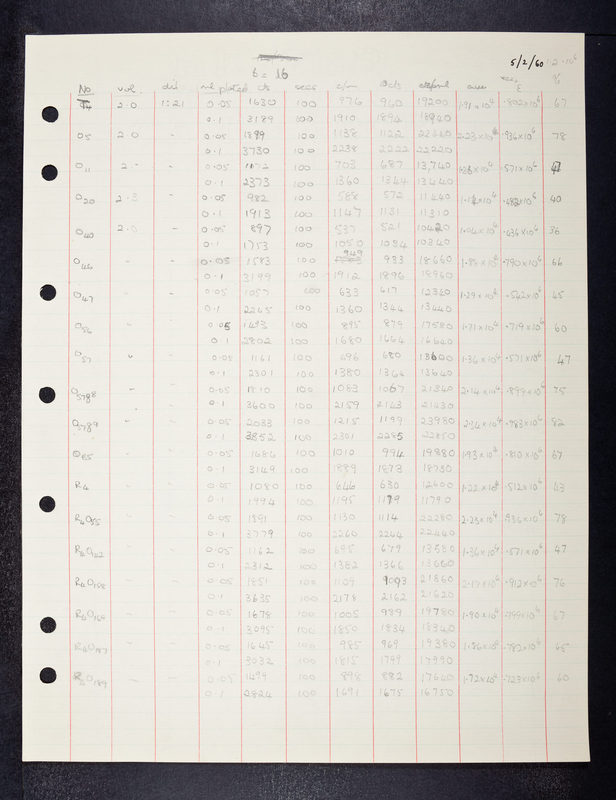 5/2/60 1.2 · 10⁶
b = 16
No vol. dil ml plated cts secs c/m Octs cts/ml aver rec. Σ %
T4 2.0 1:21 0.05 1630 100 976 960 19200 1.91×10⁴ .802×10⁶ 67
0.1 3189 100 1910 1894 18940
O5 2.0 - 0.05 1899 100 1138 1122 22440 2.23×10⁴ .936×10⁶ 78
0.1 3730 100 2238 2222 22220
O11 2 - - 0.05 100 703 687 13,740 .571×10⁶
0.1 2373 100 1360 1344 13440
O20 2.0 - 0.05 982 100 588 572 11440 .482×10⁶ 40
0.1 1913 100 1147 1131 11310
O40 2.0 - 0.05 897 100 537 521 10420 1.04×10⁴ 36
0.1 1753 100 1050 1034 10340
O46 - - 0.05 1583 100 949 933 18660 .790×10⁶ 66
0.1 3199 100 1912 1896 18960
O47 - - 0.05 1057 100 633 617 12340 1.29×10⁴ .542×10⁶ 45
0.1 2265 100 1360 1344 13440
O56 - - 0.05 1493 100 895 879 17580 1.71×10⁴ .719×10⁶ 60
0.1 2802 100 1680 1664 16640
O57 " - 0.05 1161 100 696 680 13600 1.36×10⁴ .571×10⁶ 47
0.1 2301 100 1380 1364 13640
O5788 - - 0.05 1810 100 1083 1067 21340 2.14×10⁴ .899×10⁶ 75
0.1 3600 100 2159 2143 21430
O5789 - - 0.05 2033 100 1215 1199 23980 2.34×10⁴ .983×10⁶ 82
0.1 3852 100 2301 2285 22850
O65 - - 0.05 1686 100 1010 994 19880 1.93×10⁴ .810×10⁶ 67
0.1 3149 100 1889 1873 18730
R4 - - 0.05 1080 100 646 630 12600 1.22×10⁴ .512×10⁶ 43
0.1 1994 100 1195 1179 11790
R4O55 - - 0.05 1891 100 1130 1114 22280 2.23×10⁴ .936×10⁶ 78
0.1 3779 100 2260 2244 22440
R4O142 - - 0.05 1162 100 695 679 13580 1.36×10⁴ .571×10⁶ 47
0.1 2312 100 1382 1366 13660
R4O158 - - 0.05 1851 100 1109 1093 21860 2.17×10⁴ .912×10⁶ 76
0.1 3635 100 2178 2162 21620
R4O169 - - 0.05 1678 100 1005 989 19780 1.90×10⁴ .799×10⁶ 67
0.1 3095 100 1850 1834 18340
R4O187 - - 0.05 1645 100 985 969 19380 1.86×10⁴ .782×10⁶ 65
0.1 3032 100 1815 1799 17990
O189 - - 0.05 1499 100 898 882 17640 1.72×10⁴ .723×10⁶ 60
0.1 2824 100 1691 1675 16750